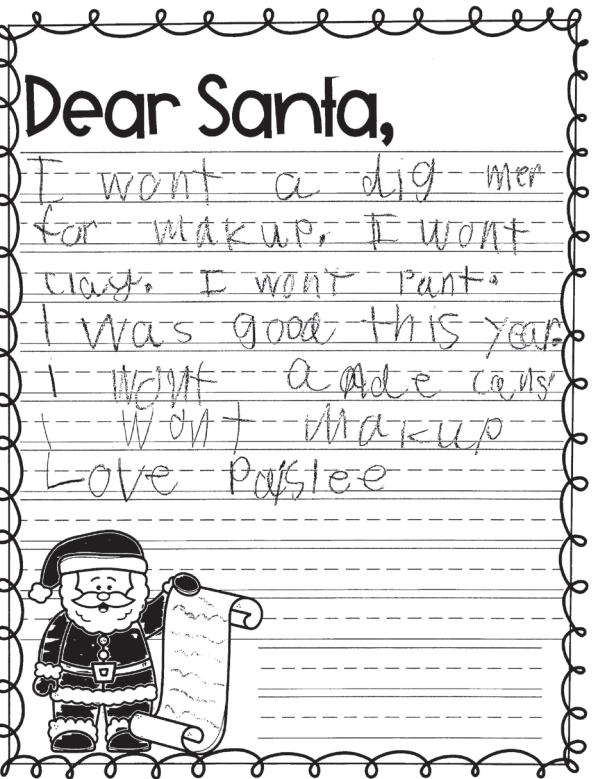 Dear Santa,
I wont a dig mer
for makup. I wont
clay. I wont pant.
I was good this year.
I wont a
I wont makup
Love Paislee